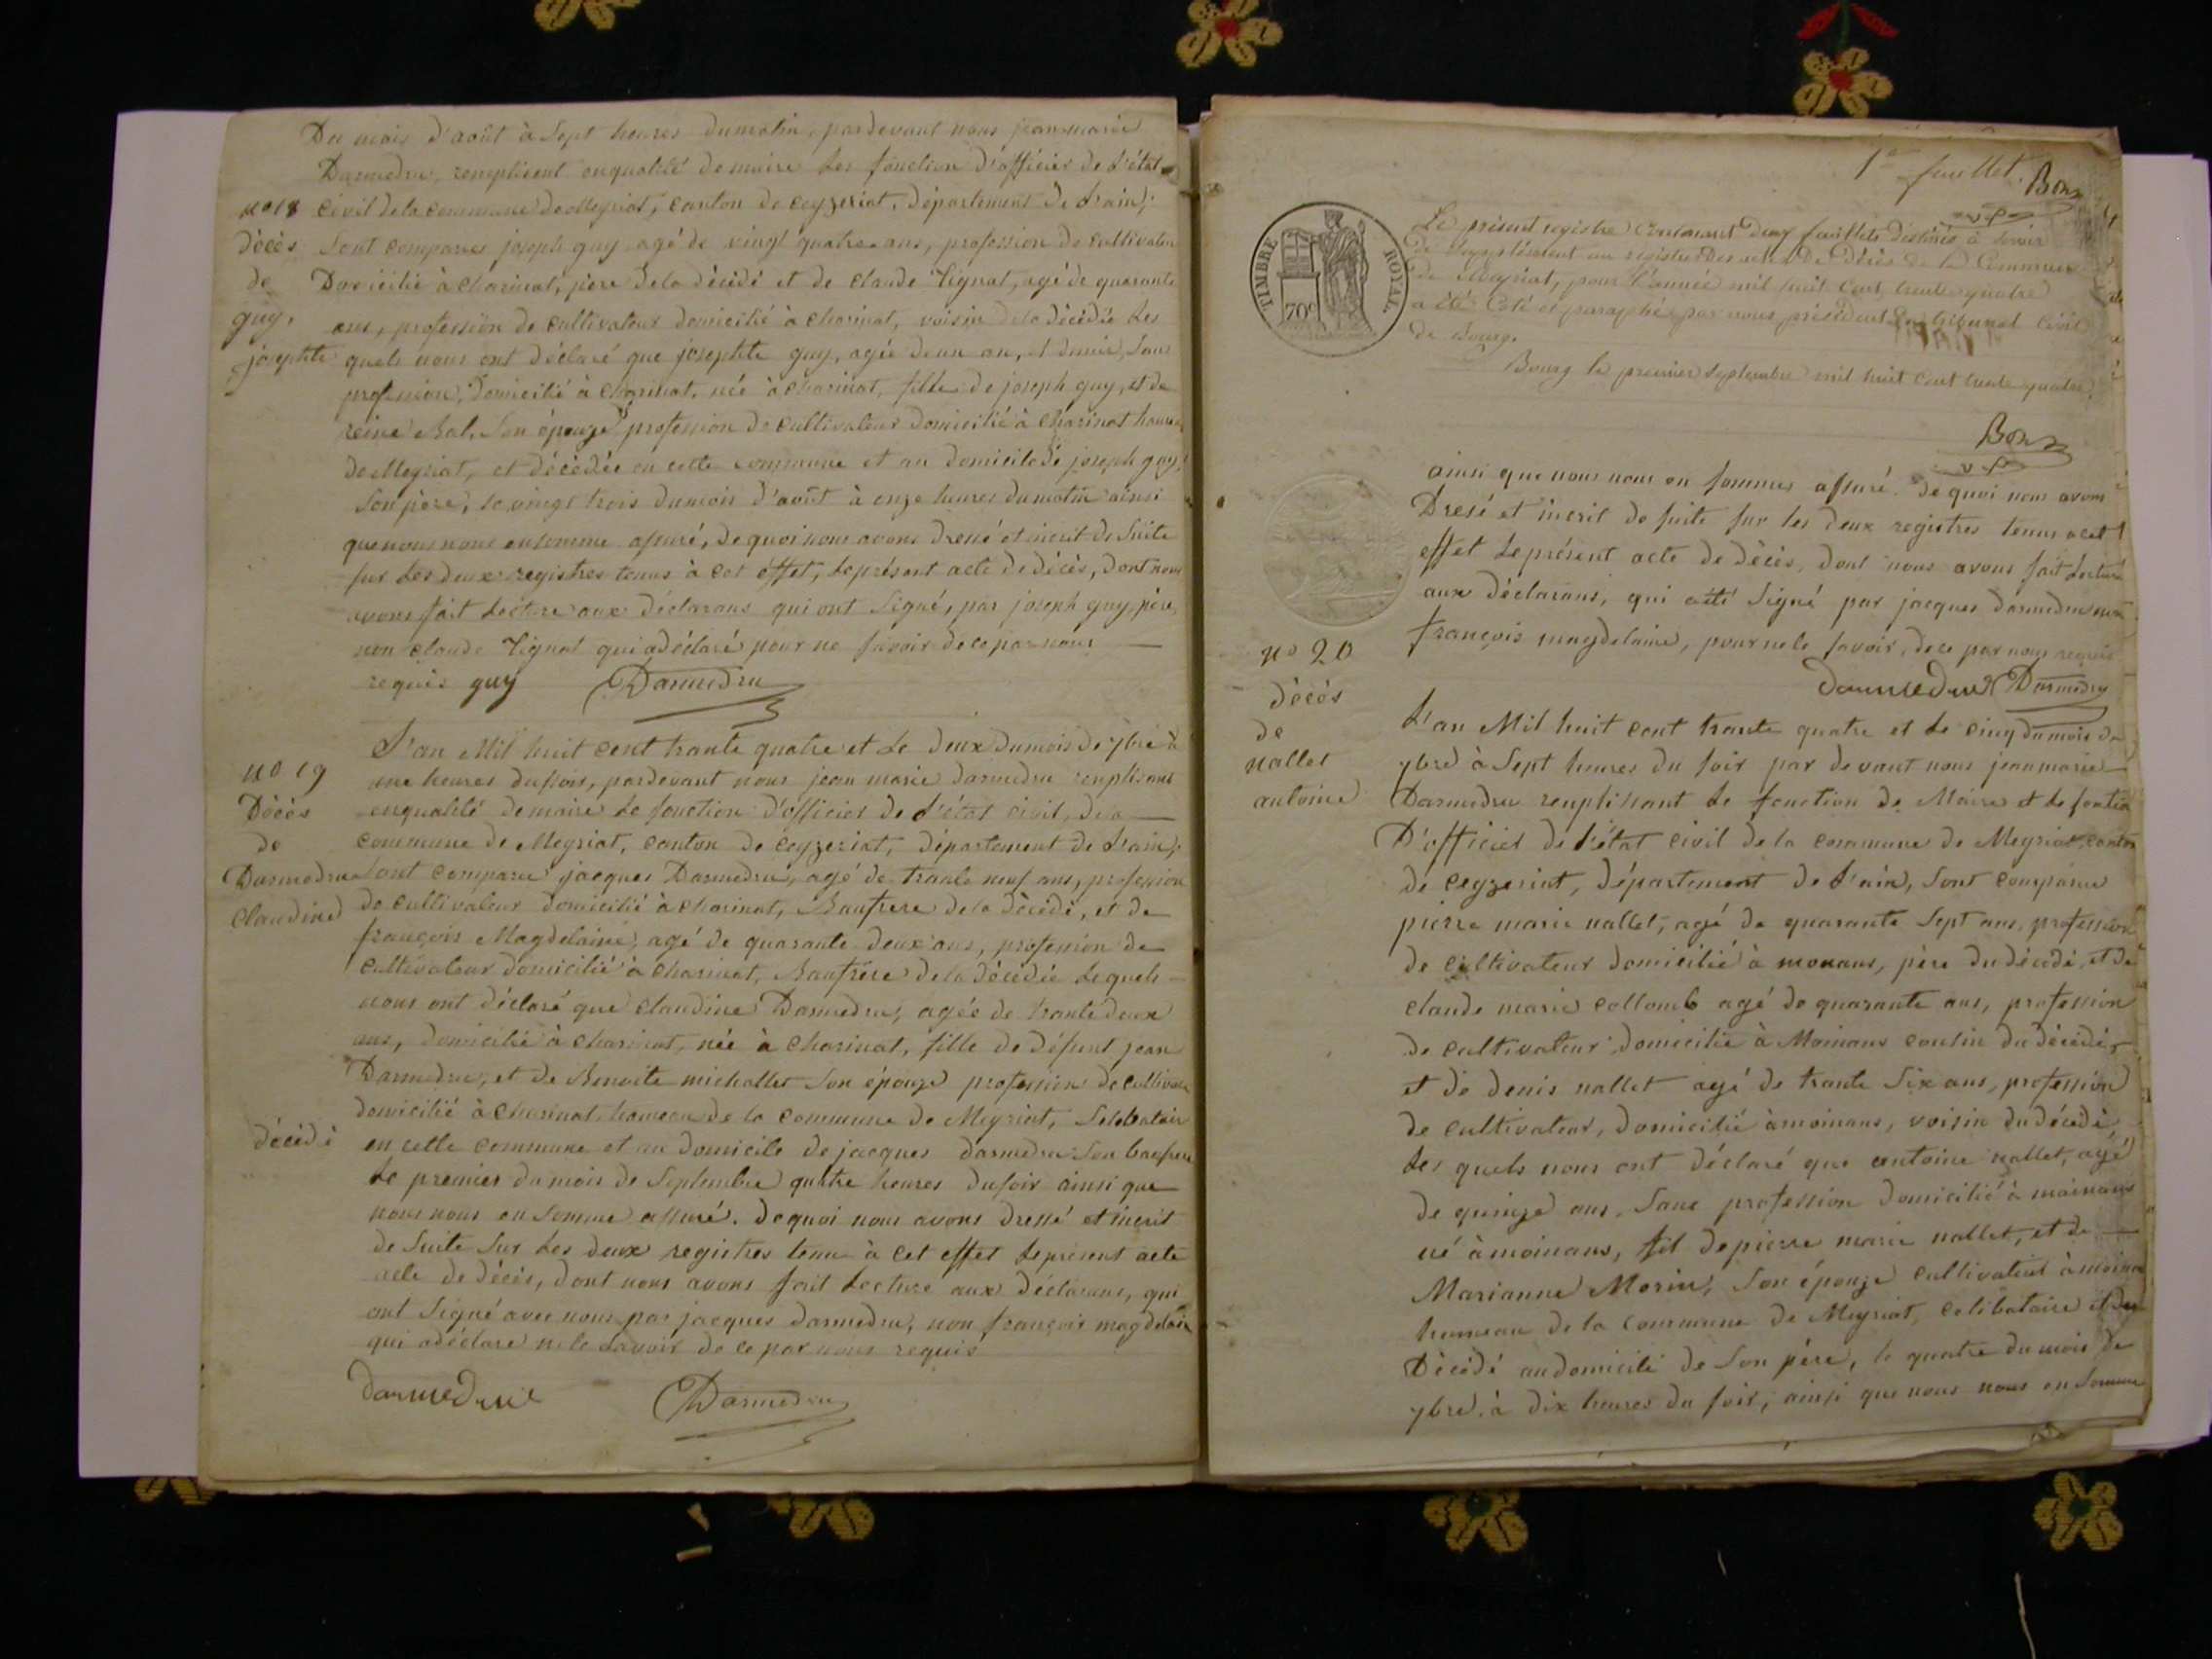 Du mois d'août à Sept heures du matin, pardevant nous jean marie
Darmedru, remplissent enqualité de maire Les fonction d'officier de L'état
civil de la commune de Meyriat, canton de ceyzeriat, département de L'ain;
Sont comparus joseph guy agé de vingt quatre ans, profession de cultivateur
Domicilié à charinat, père de la décédé et de claude Tignat, agé de quarante
ans, profession de cultivateur domicilié à charinat, voisin de la décédée Les
quels nous ont déclaré que josephte guy, agée deun an, et demie, sans
profession, Domicilié à charinat, née à charinat, fille de joseph guy, et de
reine Bal, Son épouze profession de cultivateur domicilié à Charinat hameau
de Meyriat, et décédée en cette commune et au domicile de joseph guy,
Son père, le vingt trois dumois d'août à onze heures dumatin ainsi
que nous nous ensomme assuré, de quoi nous avons dressé et inscrit de Suite
sur Les deux registres tenus à cet effet, Le présent acte de décès, dont nous
avons fait Lecture aux déclarans qui ont Signé, par joseph guy, père,
non claude Tignat qui a déclaré pour ne savoir de ce par nous
requis guy Darmedru
no 18
décès
de
guy,
josephte
L'an Mil huit cent trante quatre et Le deux dumois de 7bre à
une heures du soir, pardevant nous jean marie darmedru remplissant
enqualité de maire Le fonction d'officier de L'état civil, de a
commune de Meyriat, canton de ceyzeriat, département de L'ain;
Sont comparu jacques Darmedru, agé de trante neuf ans, profession
de cultivateur domicilié à charinat, Baufrere de la décédé, et de
françois Magdelaine, agé de quarante deux ans, profession de
cultivateur domicilié à charinat, Baufrère de la décédée Lequels
nous ont déclaré que claudine Darmedru, agée de trante deux
ans, domicilié à charinat, née à charinat, fille de défunt jean
Darmedru, et de Benoite michallet Son épouze profession de cultivateur
domicilié à charinat hameau de la commune de Meyriat, Selebataire
en cette commune et au domicile de jacques darmedru Son baufrere
Le premier du mois de Septembre quatre heures du soir ainsi que
nous nous en Somme assuré. de quoi nous avons dressé et inscrit
de Suite Sur Les deux registres tenu à cet effet Le présent acte
acte de décès, dont nous avons fait Lecture aux déclarans, qui
ont Signé avec nous par jacques darmedru, non françois magdelaine
qui a déclare ne le Savoir de ce par nous requis
darmedrue Darmedru
no 19
Décès
de
Darmedru
claudine
décédé
1er feuillet. Bon
v.p.
Le présent registre contenant deux feuillets destinés à servir
de supplément au registre des actes de Décès de la Commune
de Meyriat, pour l'année mil huit cent trente quatre
a été Coté et paraphé par nous président du tribunal Civil
de Bourg.
Bourg le premier septembre mil huit cent trente quatre
Bon
v.p.
TIMBRE ROYAL
70c
ainsi que nous nous en sommes assuré. de quoi nous avons
Dresé et inscrit de suite sur les deux registres tenus a cet
effet Le présent acte de décès, dont nous avons fait Lecture
aux déclarans, qui a été Signé par jacques darmedru non
françois magdelaine, pour ne le savoir, de ce par nous requis
darmedrue Darmedru
L'an Mil huit cent trante quatre et Le cinq du mois de
7bre à Sept heures du soir par devant nous jean marie
Darmedru remplissant Le fonction de Maire et Le fontion
D'officier de L'état civil de la commune de Meyriat, canton
de ceyzeriat, département de L'ain, Sont comparu
pierre marie nallet, agé de quarante Sept ans, profession
de cultivateur domicilié à monans, père du décédé, et de
claude marie collomb agé de quarante ans, profession
de cultivateur domicilié à Moinans cousin du décédé,
et de denis nallet agé de trante Six ans, profession
de cultivateur, domicilié à moinans, voisin du décédé,
Les quels nous ont déclaré que antoine nallet, agé
de quinze ans, Sans profession domicilié à moinans
né à moinans, fil de pierre marie nallet, et de
Marianne Morin, Son épouze cultivateur à moinans
hameau de la commune de Meyriat, celibataire et
Décédé au domicile de Son père, le quatre du mois de
7bre, à dix heures du soir, ainsi que nous nous en Somme
no 20
décès
de
nallet
antoine